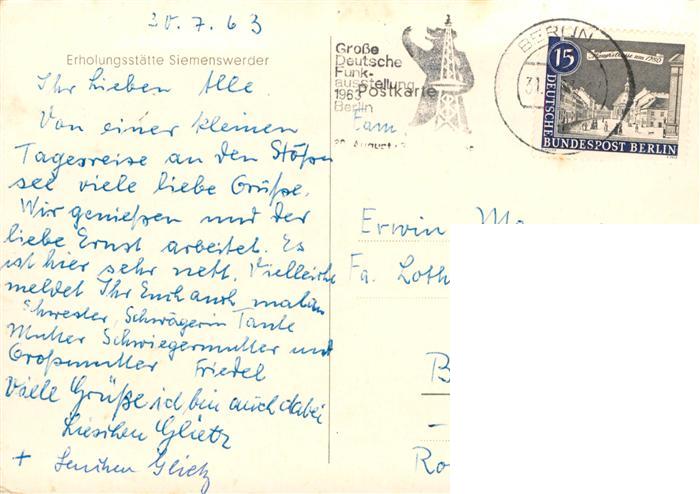 30.7.63
Erholungsstätte Siemenswerder
Ihr Lieben Alle.
Von einer kleinen
Tagesreise an den Stößen
see viele liebe Grüße.
Wir genießen und der
liebe Ernst arbeitet. Es
ist hier sehr nett. Vielleicht
meldet Ihr Euch auch mal
Schwester, Schwägerin Tante
Mutter Schwiegermutter und
Großmutter Friedel
Viele Grüße ich bin auch dabei
Lieschen Glietz
+
Große
Deutsche
Funk-
ausstellung
1963
Berlin
Postkarte
BERLIN
31.
15
DEUTSCHE
BUNDESPOST BERLIN
Fam.
Erwin
Fa. Loth
B
Ro